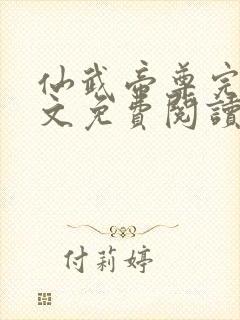 仙武帝尊完
文免費閱讀
付莉婷